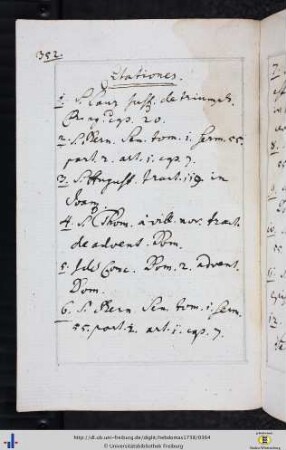 352.
Citationes.
1. S. Laur. Just. de triumph.
Xti ag. cap. 20.
2. S. Bern. Sen. tom. 1. serm. 55.
part. 2. art. 1. cap. 7.
3. S. August. tract. 119. in
Joan.
4. S. Thom. à vill. nov. tract.
de advent. Dom.
5. Idem Conc. Dom. 2. advent.
Dom.
6. S. Bern. Sen. tom. 1. serm.
55. part. 2. art. 1. cap. 7.
http://dl.ub.uni-freiburg.de/diglit/hebdomas1738/0384
© Universitätsbibliothek Freiburg